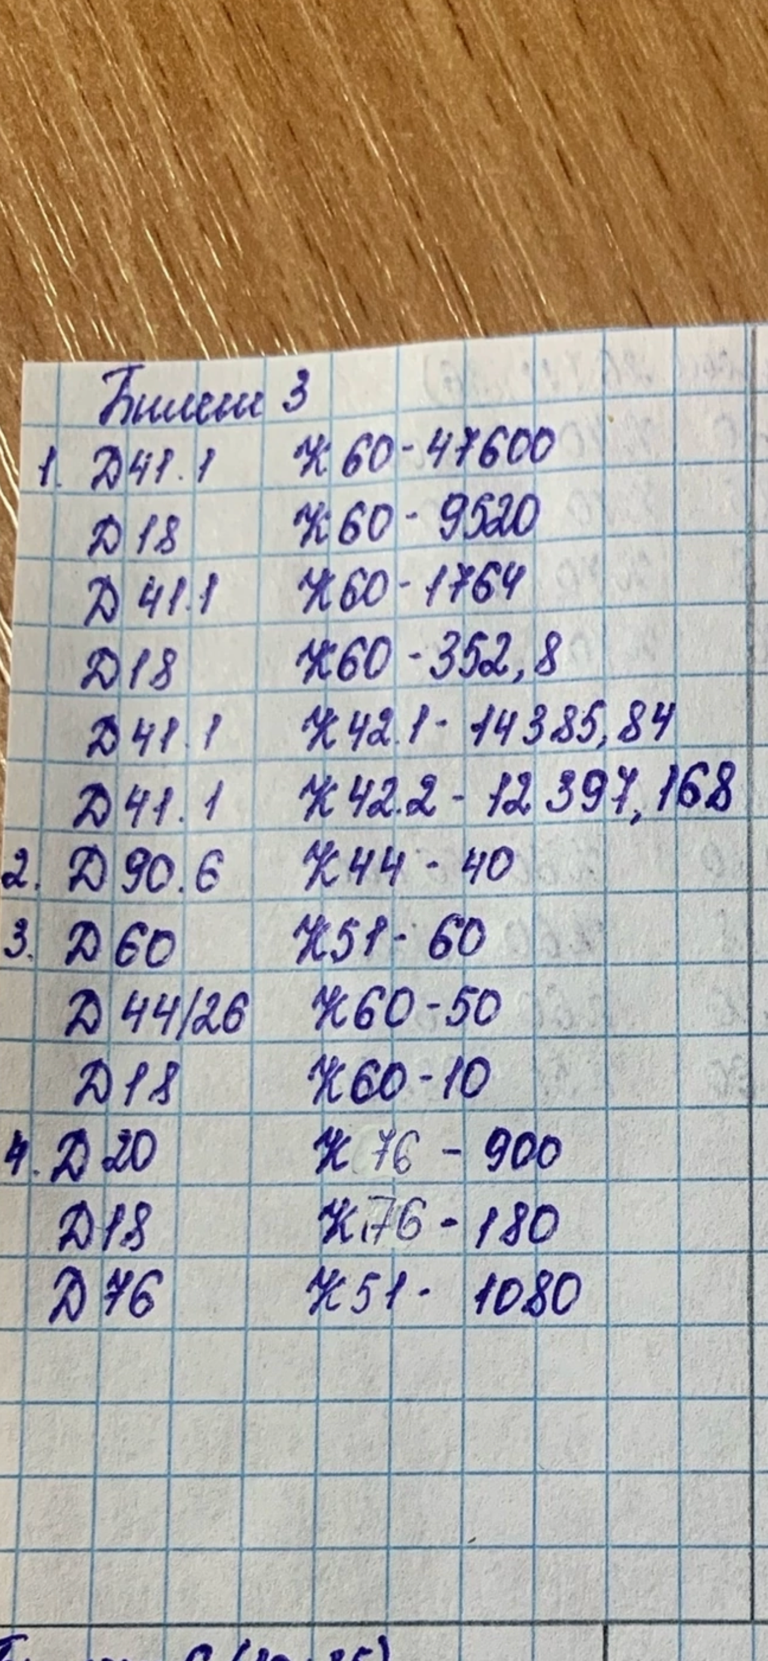 Билет 3
1. Д 41.1 К 60 - 47600
Д 18 К 60 - 9520
Д 41.1 К 60 - 1764
Д 18 К 60 - 352,8
Д 41.1 К 42.1 - 14385,84
Д 41.1 К 42.2 - 12397,168
2. Д 90.6 К 44 - 40
3. Д 60 К 51 - 60
Д 44/26 К 60 - 50
Д 18 К 60 - 10
4. Д 20 К 76 - 900
Д 18 К 76 - 180
Д 76 К 51 - 1080